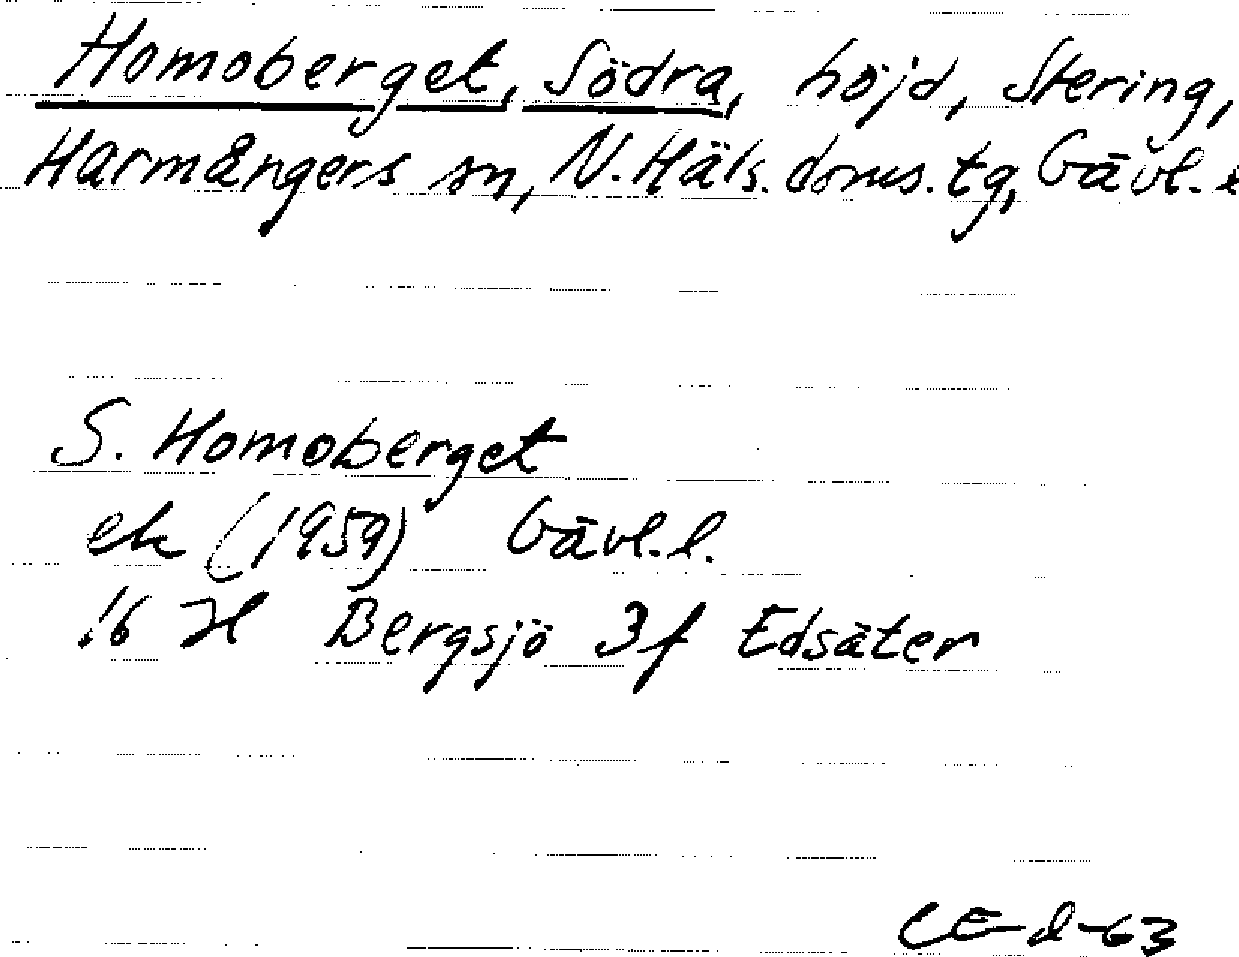 Homoberget, Södra, höjd, Stering,
Harmångers sn, N. Häls. doms. tg, Gävl. l
S. Homoberget
ek (1959) Gävl. l.
16 H Bergsjö 3f Edsäter
CE-d-63